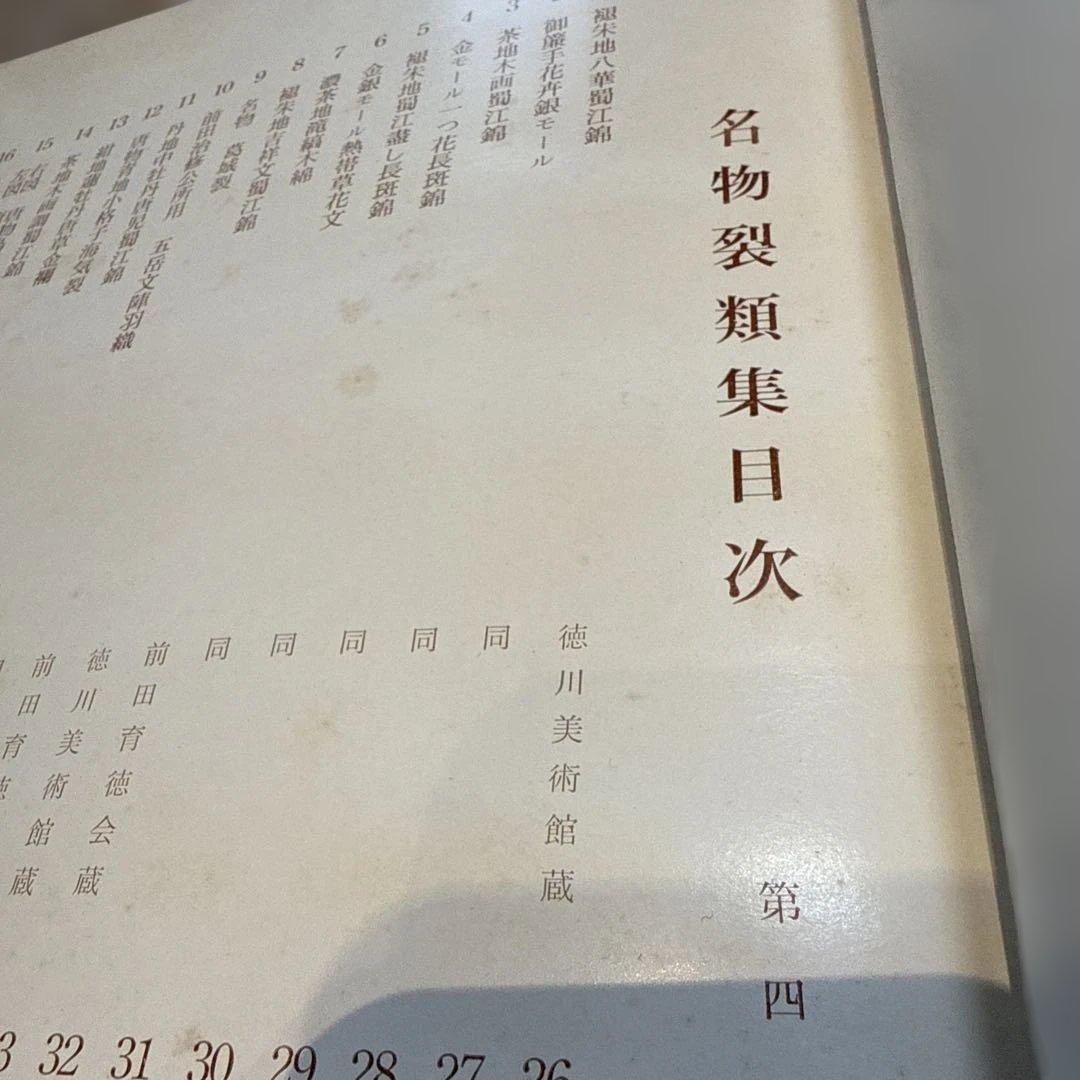 名物裂類集目次 第四
褪朱地八華蜀江錦 徳川美術館蔵
御簾手花卉銀モール 同
3 茶地木画蜀江錦 同
4 金モール一つ花長斑錦 同
5 褪朱地蜀江盡し長斑錦 同
6 金銀モール熱帯草花文 同
7 濃茶地滝縞木綿
8 褪朱地吉祥文蜀江錦
9 名物 葛城裂
10 前田治脩公所用 五岳文陣羽織 前田育徳会蔵
11 丹地中牡丹唐児蜀江錦 徳川美術館蔵
12 唐物青地小格子海気裂 前田育徳
13 紺地蓮牡丹唐草金襴
14 茶地木画調蜀江錦
15 右図
16 左図 唐物
26
27
28
29
30
31
32